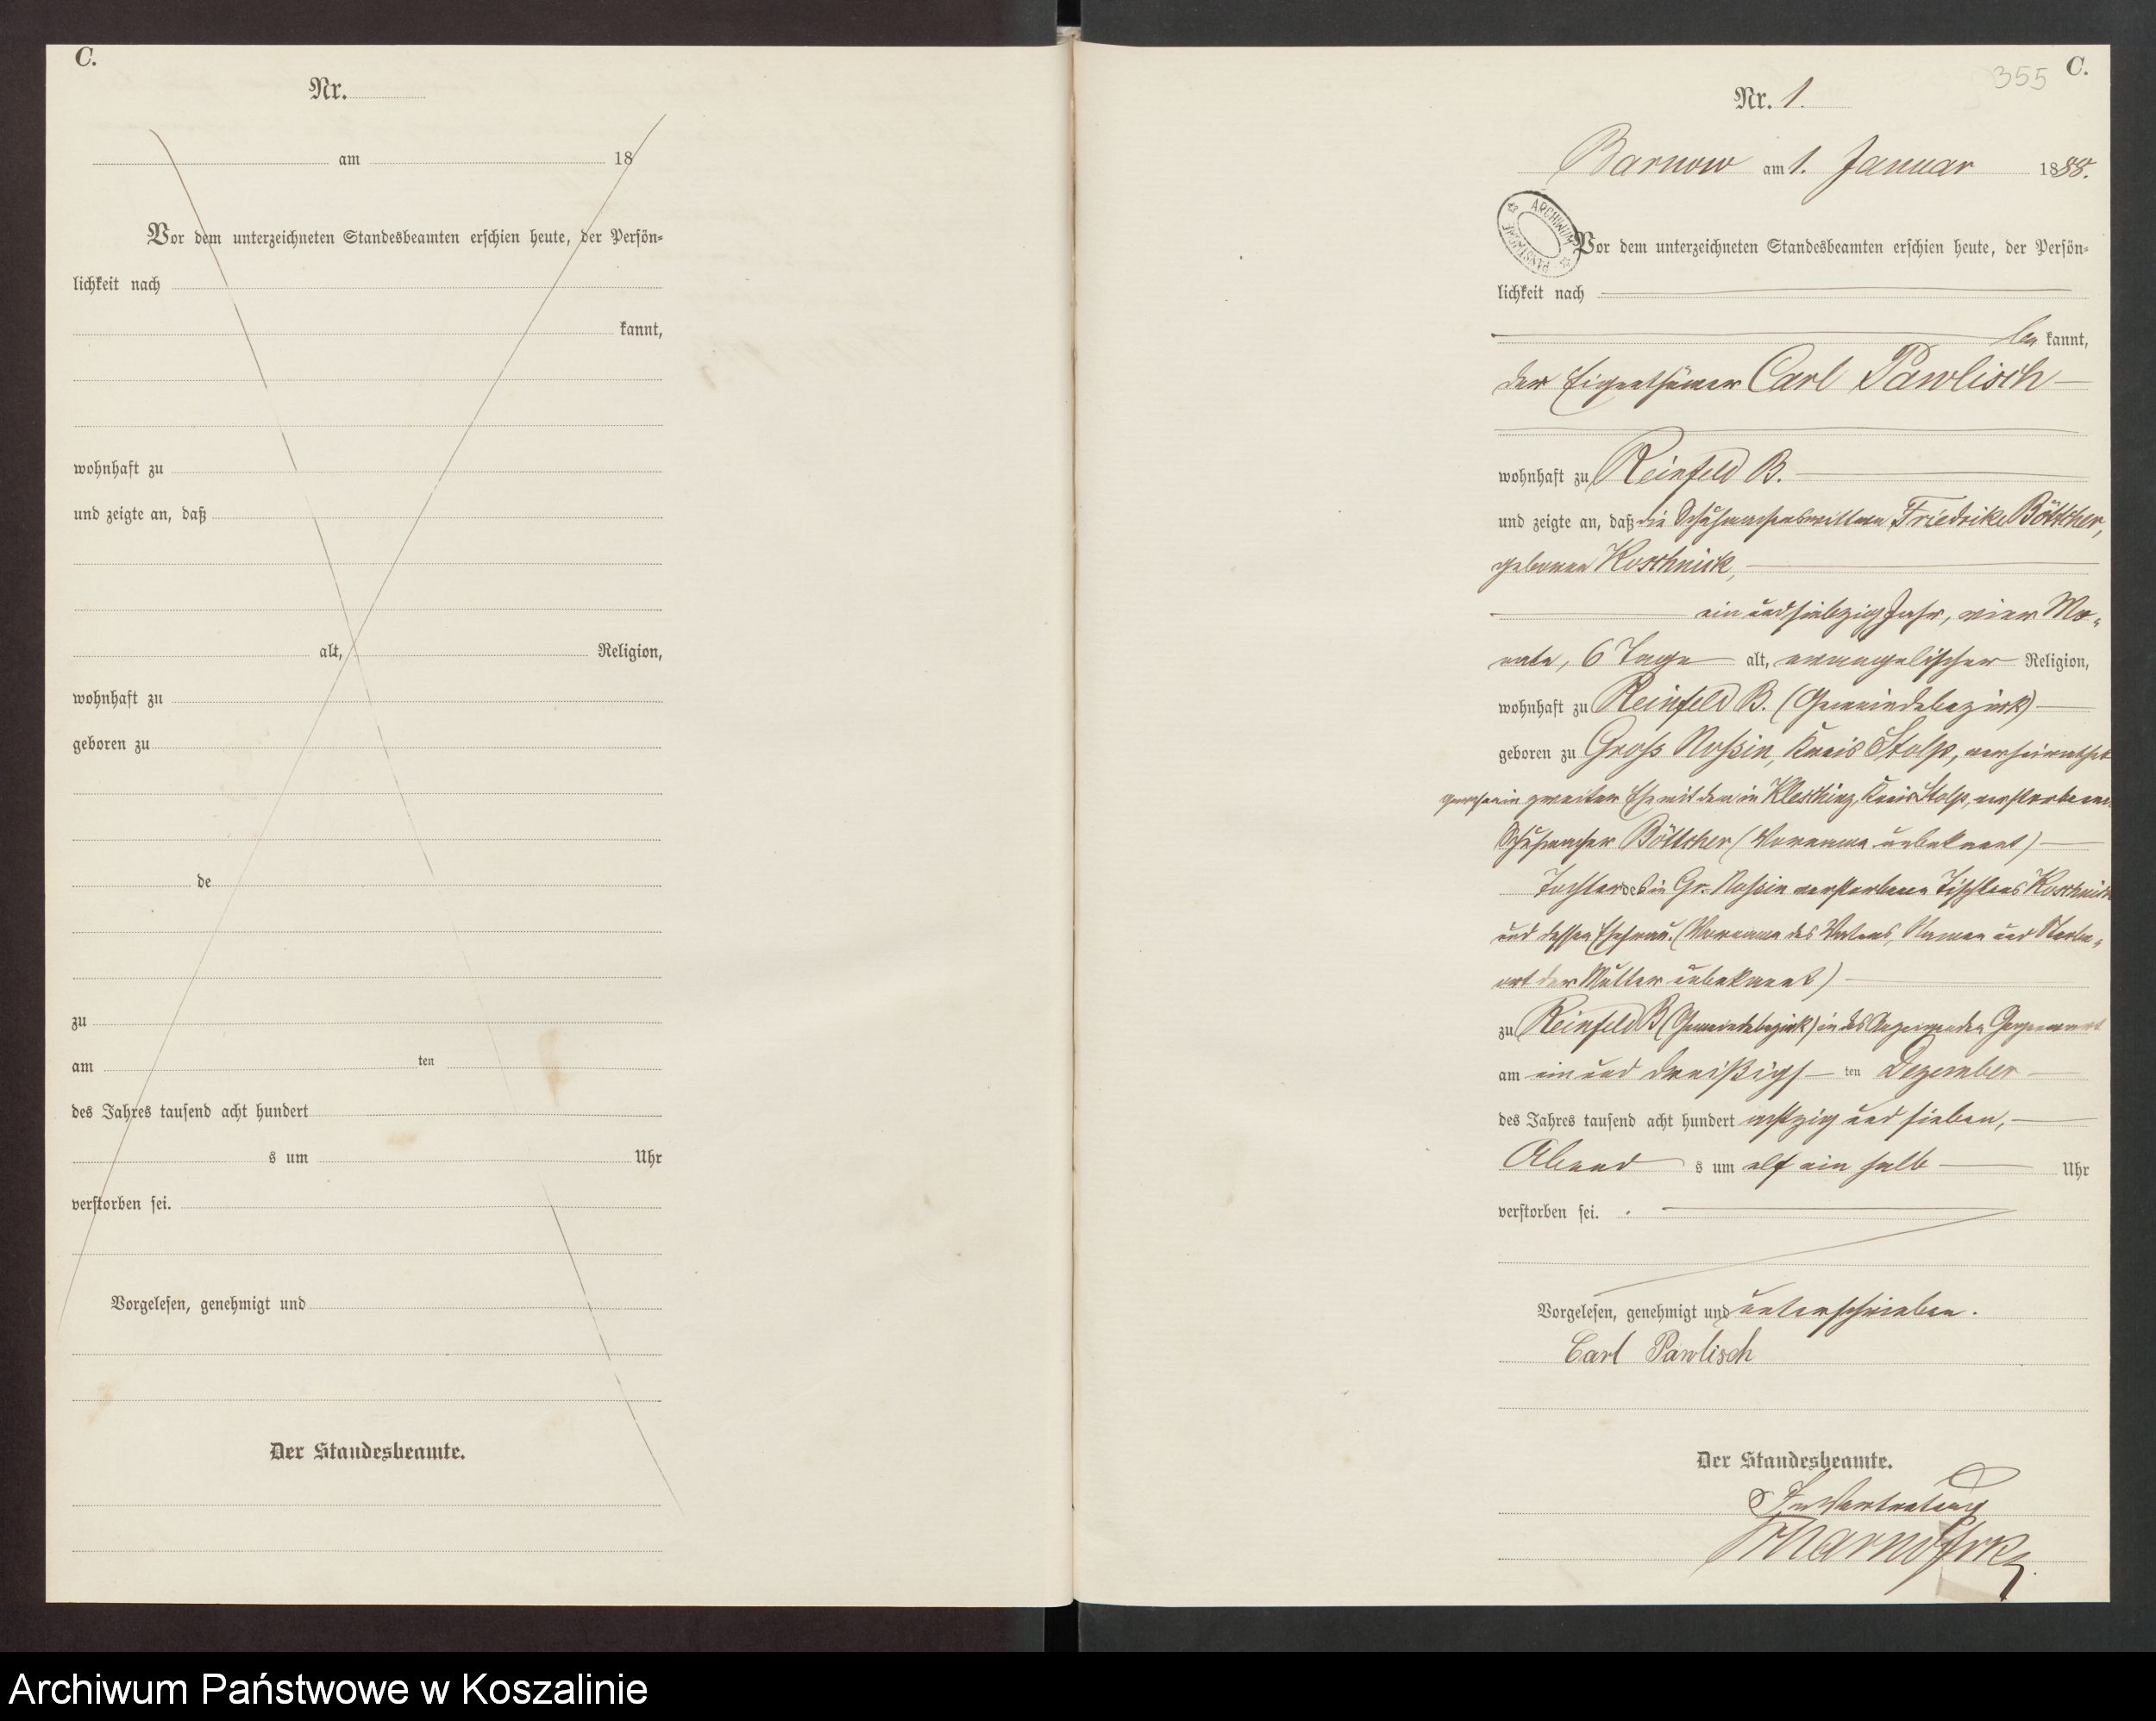 C.
Nr.
am 18
Vor dem unterzeichneten Standesbeamten erschien heute, der Persön=
lichkeit nach
kannt,
wohnhaft zu
und zeigte an, daß
alt, Religion,
wohnhaft zu
geboren zu
de
zu
am ten
des Jahres tausend acht hundert
s um Uhr
verstorben sei.
Vorgelesen, genehmigt und
Der Standesbeamte.
355 C.
Nr. 1.
Barnow am 1. Januar 1888.
ARCHIWUM PAŃSTWOWE
Vor dem unterzeichneten Standesbeamten erschien heute, der Persön=
lichkeit nach
be kannt,
der Eigenthümer Carl Pawlisch
wohnhaft zu Reinfeld B.
und zeigte an, daß die Schuhmacherwittwe Friedrike Böttcher,
geborene Koschnick,
ein und siebzig Jahr, vier Mo=
nate, 6 Tage alt, evangelischer Religion,
wohnhaft zu Reinfeld B. (Gemeindebezirk)
geboren zu Groß Noßin, Kreis Stolp, verheirathet
gewesen in zweiter Ehe mit dem in Kleschinz, Kreis Stolp, verstorbenen
Schuhmacher Böttcher (Vorname unbekannt)
Tochter des in Gr. Noßin verstorbenen Tischlers Koschnick
und dessen Ehefrau. (Vorname des Vaters, Namen und Sterbe=
ort der Mutter unbekannt)
zu Reinfeld B (Gemeindebezirk) in des Anzeigenden Gegenwart
am ein und dreißigs ten Dezember
des Jahres tausend acht hundert achtzig und sieben,
Abend s um elf ein halb Uhr
verstorben sei.
Vorgelesen, genehmigt und unterschrieben.
Carl Pawlisch
Der Standesbeamte.
In Vertretung
Archiwum Państwowe w Koszalinie